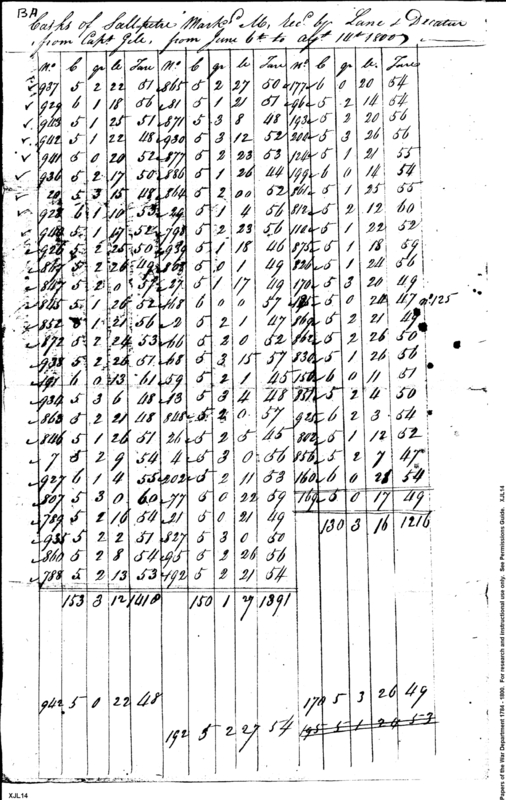 BA
Casks of Saltpetre Mark'd M, rec'd by Lane & Decatur
from Capt Gele, from June 6th to Augt 14th 1800
No. C qr lb. Tare No. C qr lb Tare C qr lb. Tare
937 5 2 22 51 865 5 2 27 50 177 6 0 20 54
929 6 1 18 56 81 5 1 21 51 96 5 2 14 54
943 5 1 25 51 871 5 3 8 48 193 5 2 20 56
942 5 1 22 48 930 5 3 12 52 200 5 3 26 56
941 5 0 20 52 877 5 2 23 53 124 5 1 21 55
936 5 2 17 50 886 5 1 26 44 199 6 0 14 54
20 5 3 15 48 864 5 2 00 52 861 5 1 25 55
928 6 1 10 53 29 5 1 4 56 812 5 2 12 60
940 5 1 17 52 798 5 2 23 56 110 5 1 22 52
926 5 2 25 50 939 5 1 18 46 875 5 1 18 59
869 5 2 26 49 868 5 0 1 49 826 5 1 24 56
847 5 2 0 57 27 5 1 17 49 170 5 3 20 49
845 5 1 26 52 168 6 0 0 57 195 5 0 24 47 No. 125
852 5 1 21 56 2 5 2 1 47 869 5 2 21 49
872 5 2 24 53 66 5 2 0 52 862 5 2 26 50
938 5 2 26 51 68 5 3 15 57 830 5 1 26 56
191 6 0 13 61 59 5 2 1 45 150 6 0 11 51
934 5 3 6 48 13 5 3 4 48 851 5 2 4 50
863 5 2 21 48 845 5 2 0 57 925 6 2 3 54
846 5 1 26 51 26 5 2 5 45 802 5 1 12 52
7 5 2 9 54 4 5 3 0 56 856 5 2 7 47
927 6 1 4 55 202 5 2 11 53 160 6 0 28 54
807 5 3 0 60 77 5 0 22 59 169 5 0 17 49
789 5 2 16 54 21 5 0 21 49 130 3 16 1216
935 5 2 22 51 827 5 3 0 50
860 5 2 8 54 95 5 2 26 56
788 5 2 13 53 192 5 2 21 54
153 3 12 1418 150 1 7 1391
942 5 0 22 48 170 5 3 26 49
192 5 2 27 54 195 5 1 24 53
XJL14
Papers of the War Department 1784 - 1800. For research and instructional use only. See Permissions Guide. XJL14